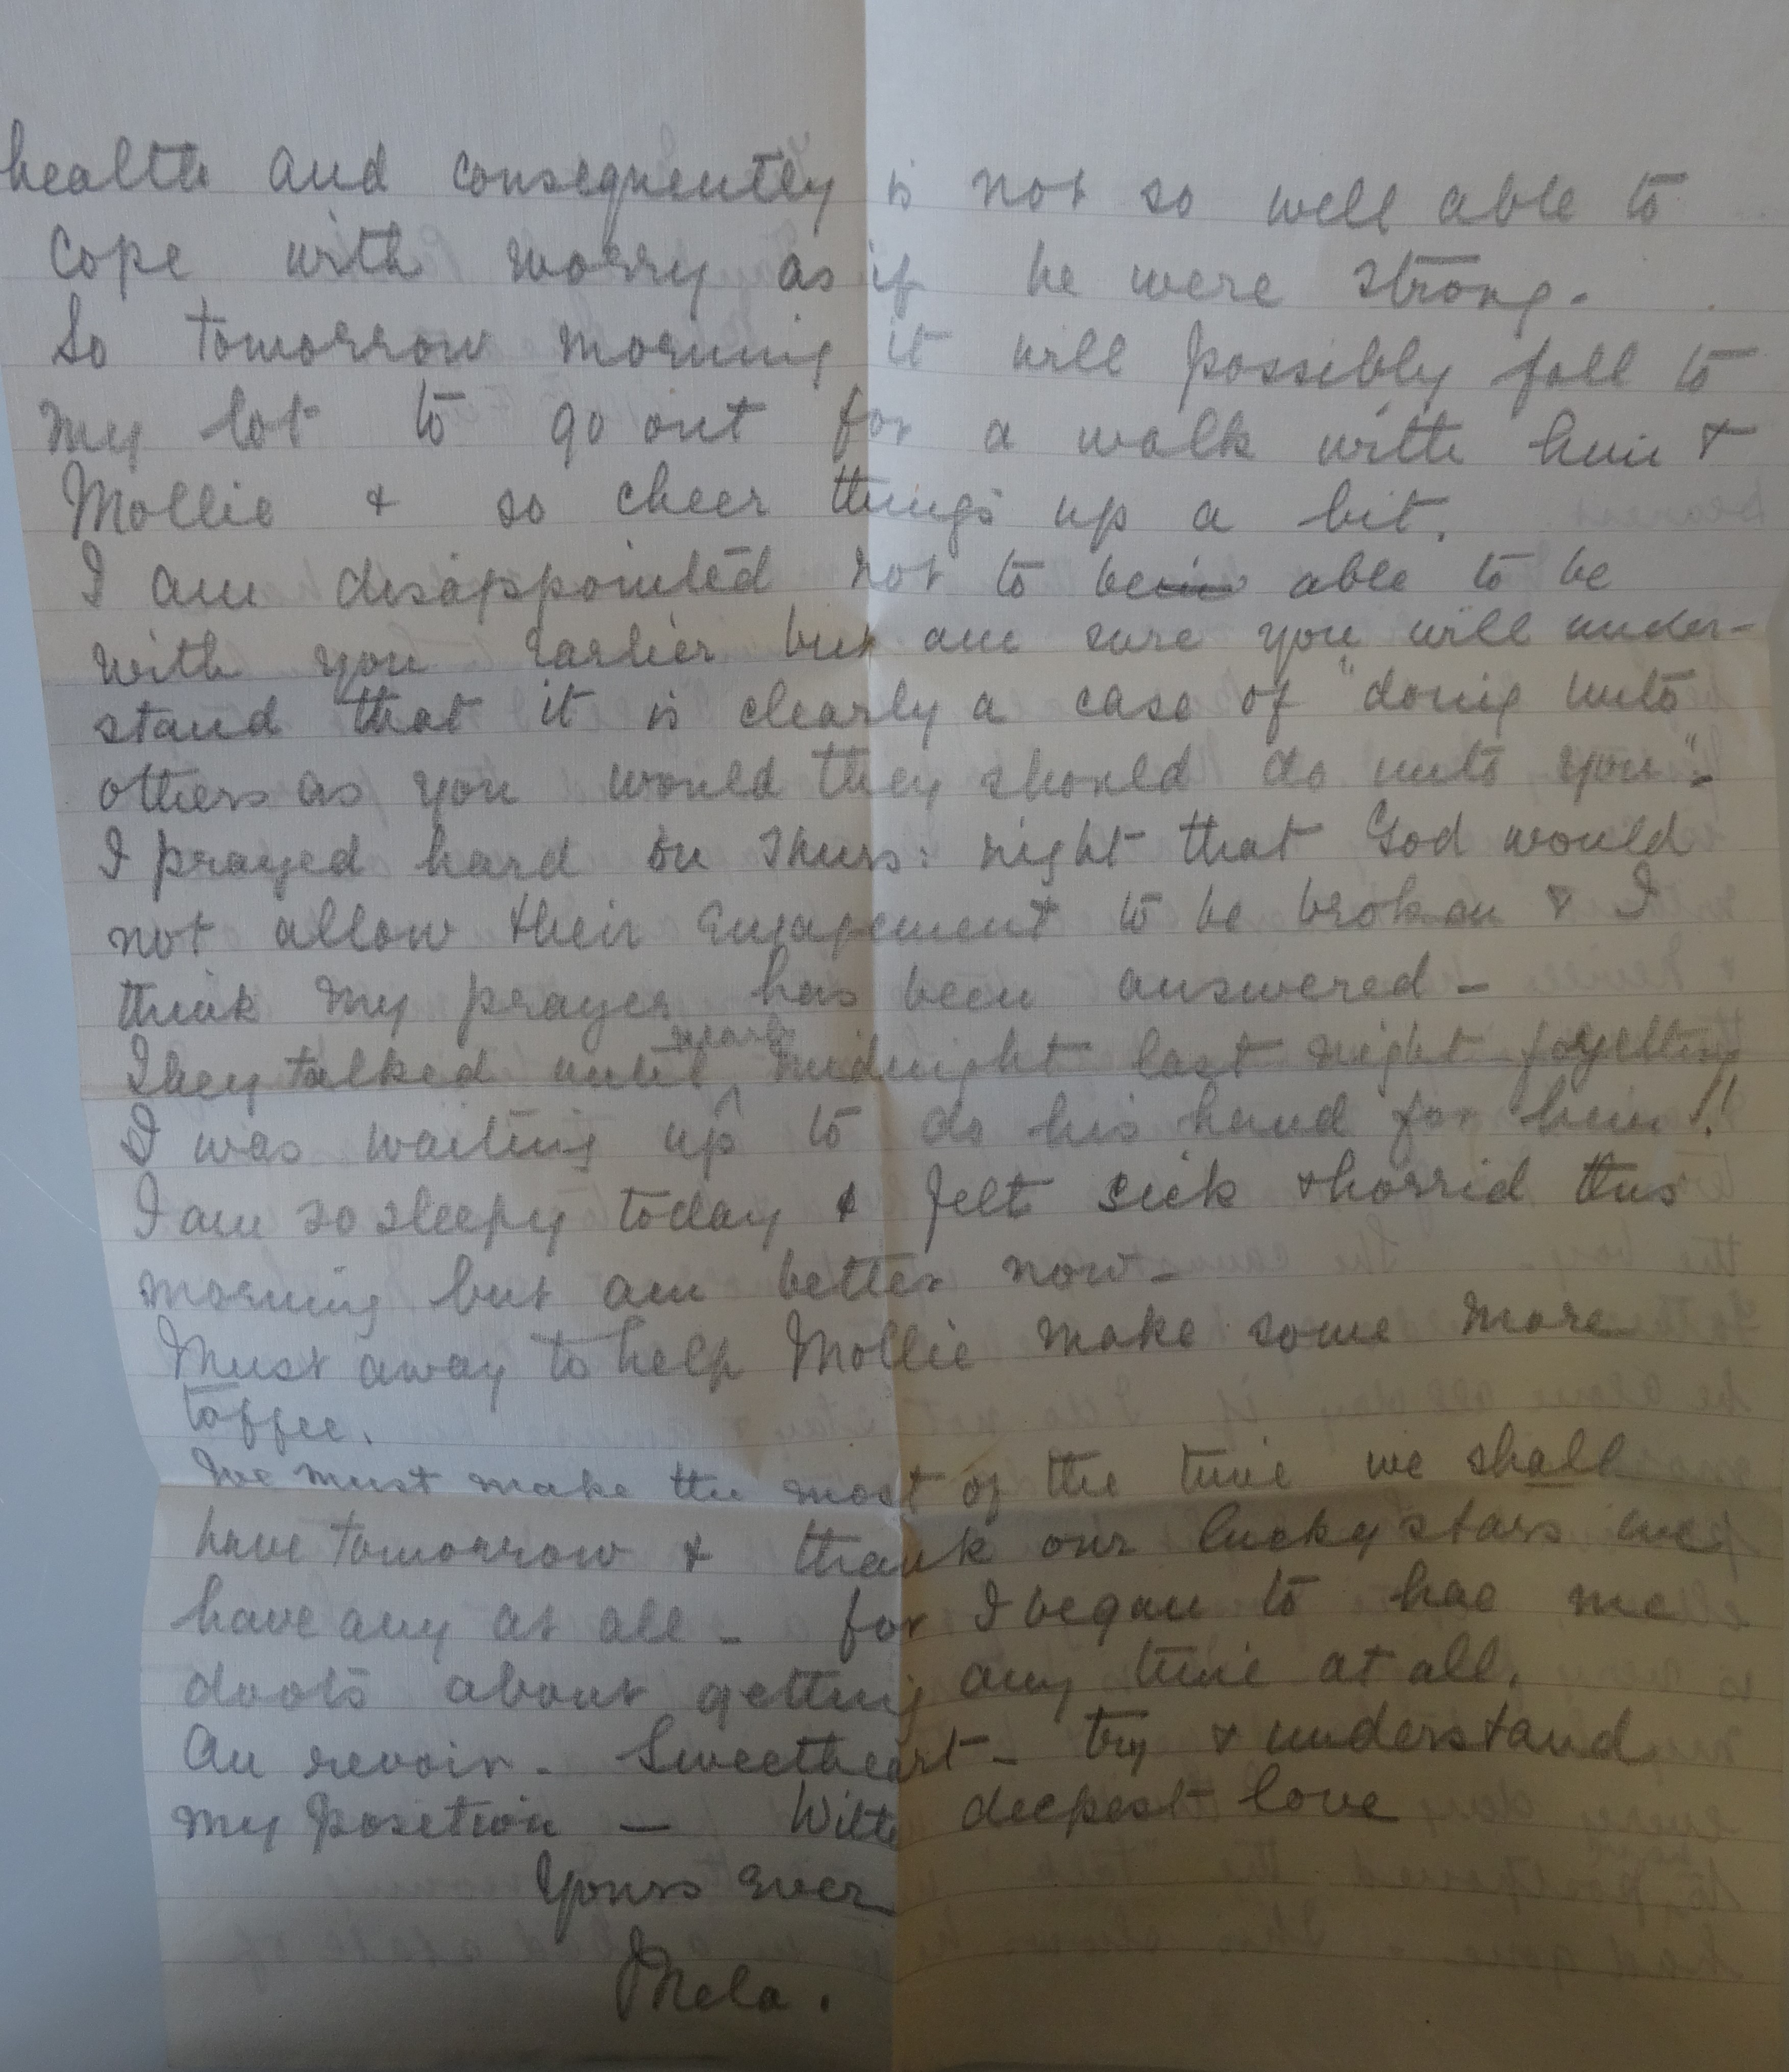 health and consequently is not so well able to
cope with worry as if he were strong.
So tomorrow morning it will possibly fall to
my lot to go out for a walk with him &
Mollie & so cheer things up a bit.
I am disappointed not to be able to be
with you earlier but am sure you will under-
stand that it is clearly a case of "doing unto
others as you would they should do unto you"-
I prayed hard on Thurs: night that God would
not allow their engagement to be broken & I
think my prayer has been answered -
nearly
They talked until midnight last night forgetting
I was waiting up to do his hand for him!!
I am so sleepy today & felt sick & horrid this
morning but am better now -
Must away to help Mollie make some more
toffee.
We must make the most of the time we shall
have tomorrow & thank our lucky stars we
have any at all - for I began to hae me
doots about getting any time at all.
Au revoir - Sweetheart - try & understand
my position — With deepest love
Yours Ever